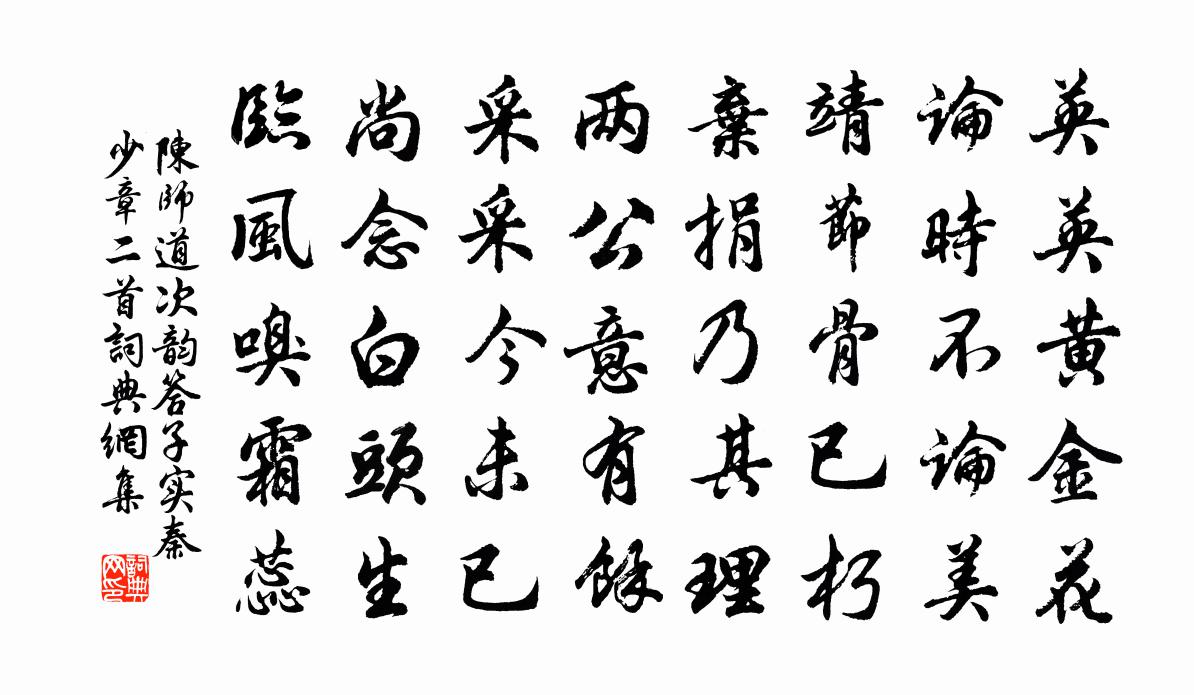 英英黄金花
論時不論美
靖節骨已朽
棄捐乃其理
两公意有餘
采采今未已
尚念白頭生
臨風嗅霜蕊
陳師道次韵答子实秦
少章二首詞典網集
詞典
网印